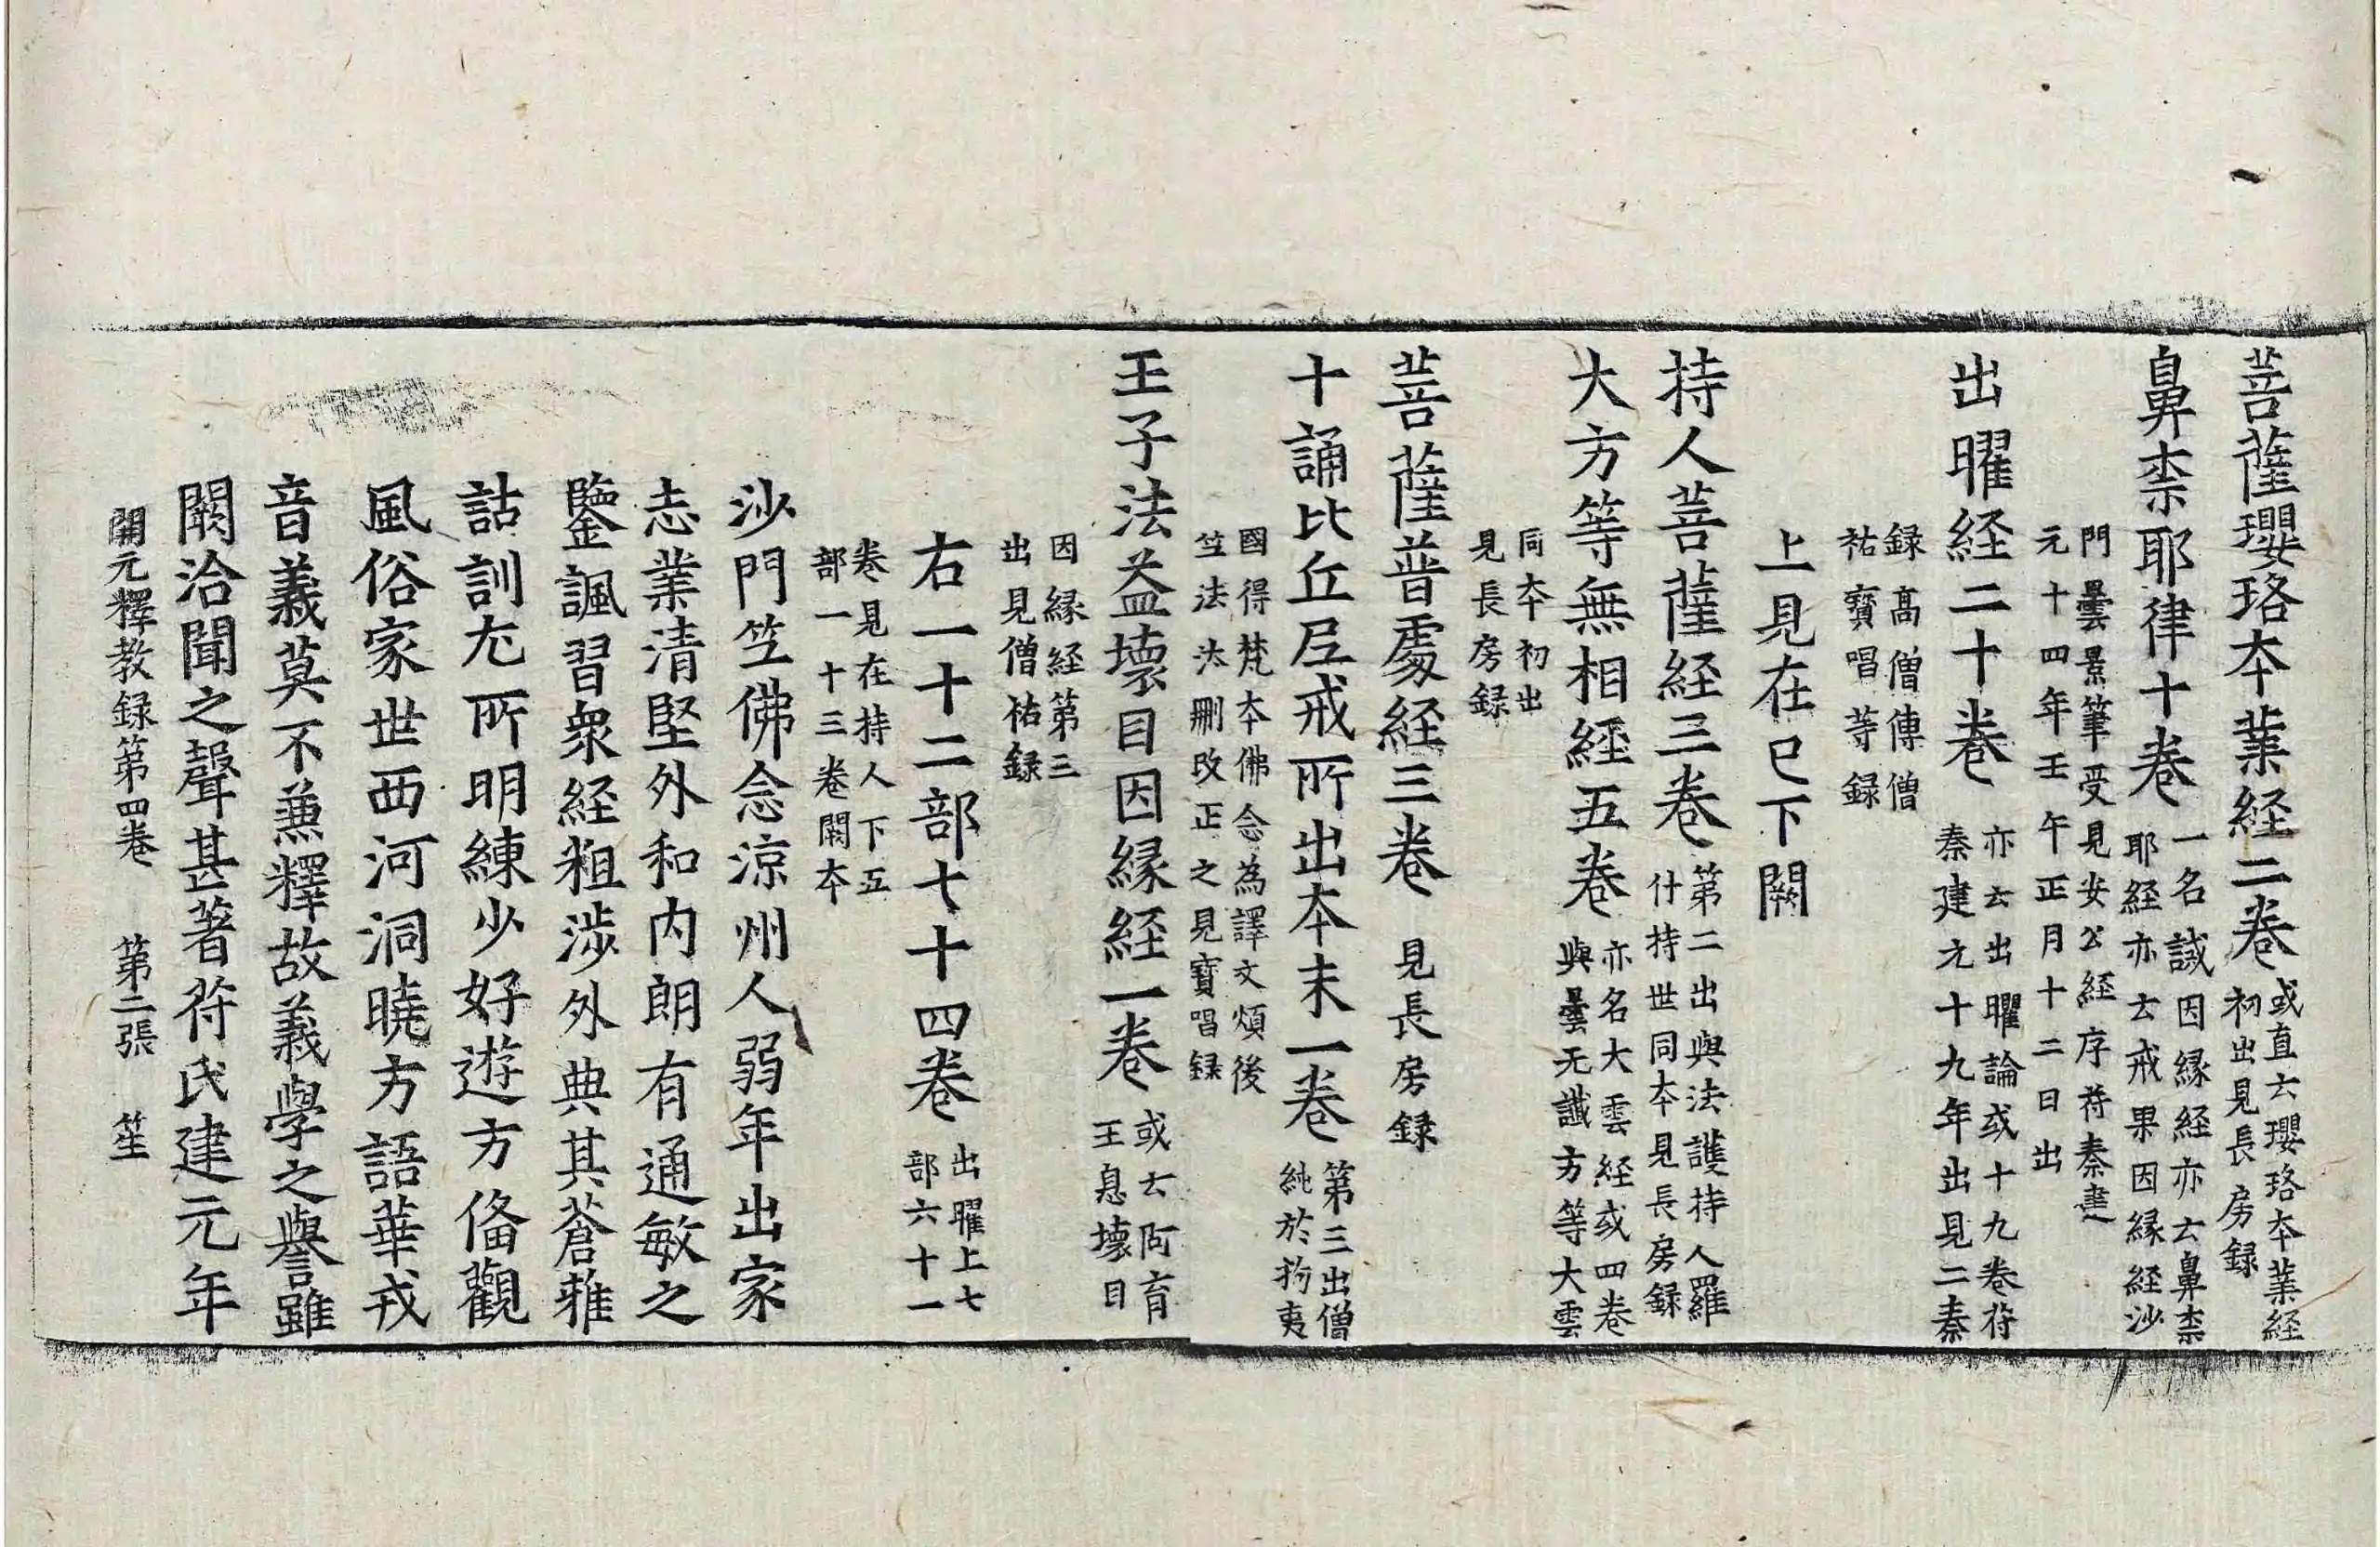 菩薩瓔珞本業経二卷 或直云瓔珞本業経初出見長房録
鼻柰耶律十卷 一名誡因縁経亦云鼻柰耶経亦云戒果因縁経沙
門曇景筆受見安公経序苻秦建元十四年壬午正月十二日出
出曜経二十卷 亦云出曜論或十九卷苻秦建元十九年出見二秦
録髙僧傳僧祐寶唱等録
上見在已下闕
持人菩薩経三卷 第二出與法護持人羅什持世同本見長房録
大方等無相經五卷 亦名大雲経或四卷與曇无讖方等大雲
同本初出見長房録
菩薩普處経三卷 見長房録
十誦比丘尼戒所出本末一卷 第三出僧純於拘夷
國得梵本佛念為譯文煩後竺法汰刪改正之見寶唱録
王子法益壞目因縁経一卷 或云阿育王息壞目
因縁経第三出見僧祐録
右一十二部七十四卷 出曜上七部六十一
卷見在持人下五部一十三卷闕本
沙門竺佛念涼州人弱年出家
志業清堅外和内朗有通敏之
鑒諷習衆経粗涉外典其蒼雅
詁訓尤所明練少好遊方俻觀
風俗家世西河洞曉方語華戎
音義莫不兼釋故義學之譽雖
闕洽聞之聲甚著苻氏建元年
開元釋教録第四卷 第二張 笙